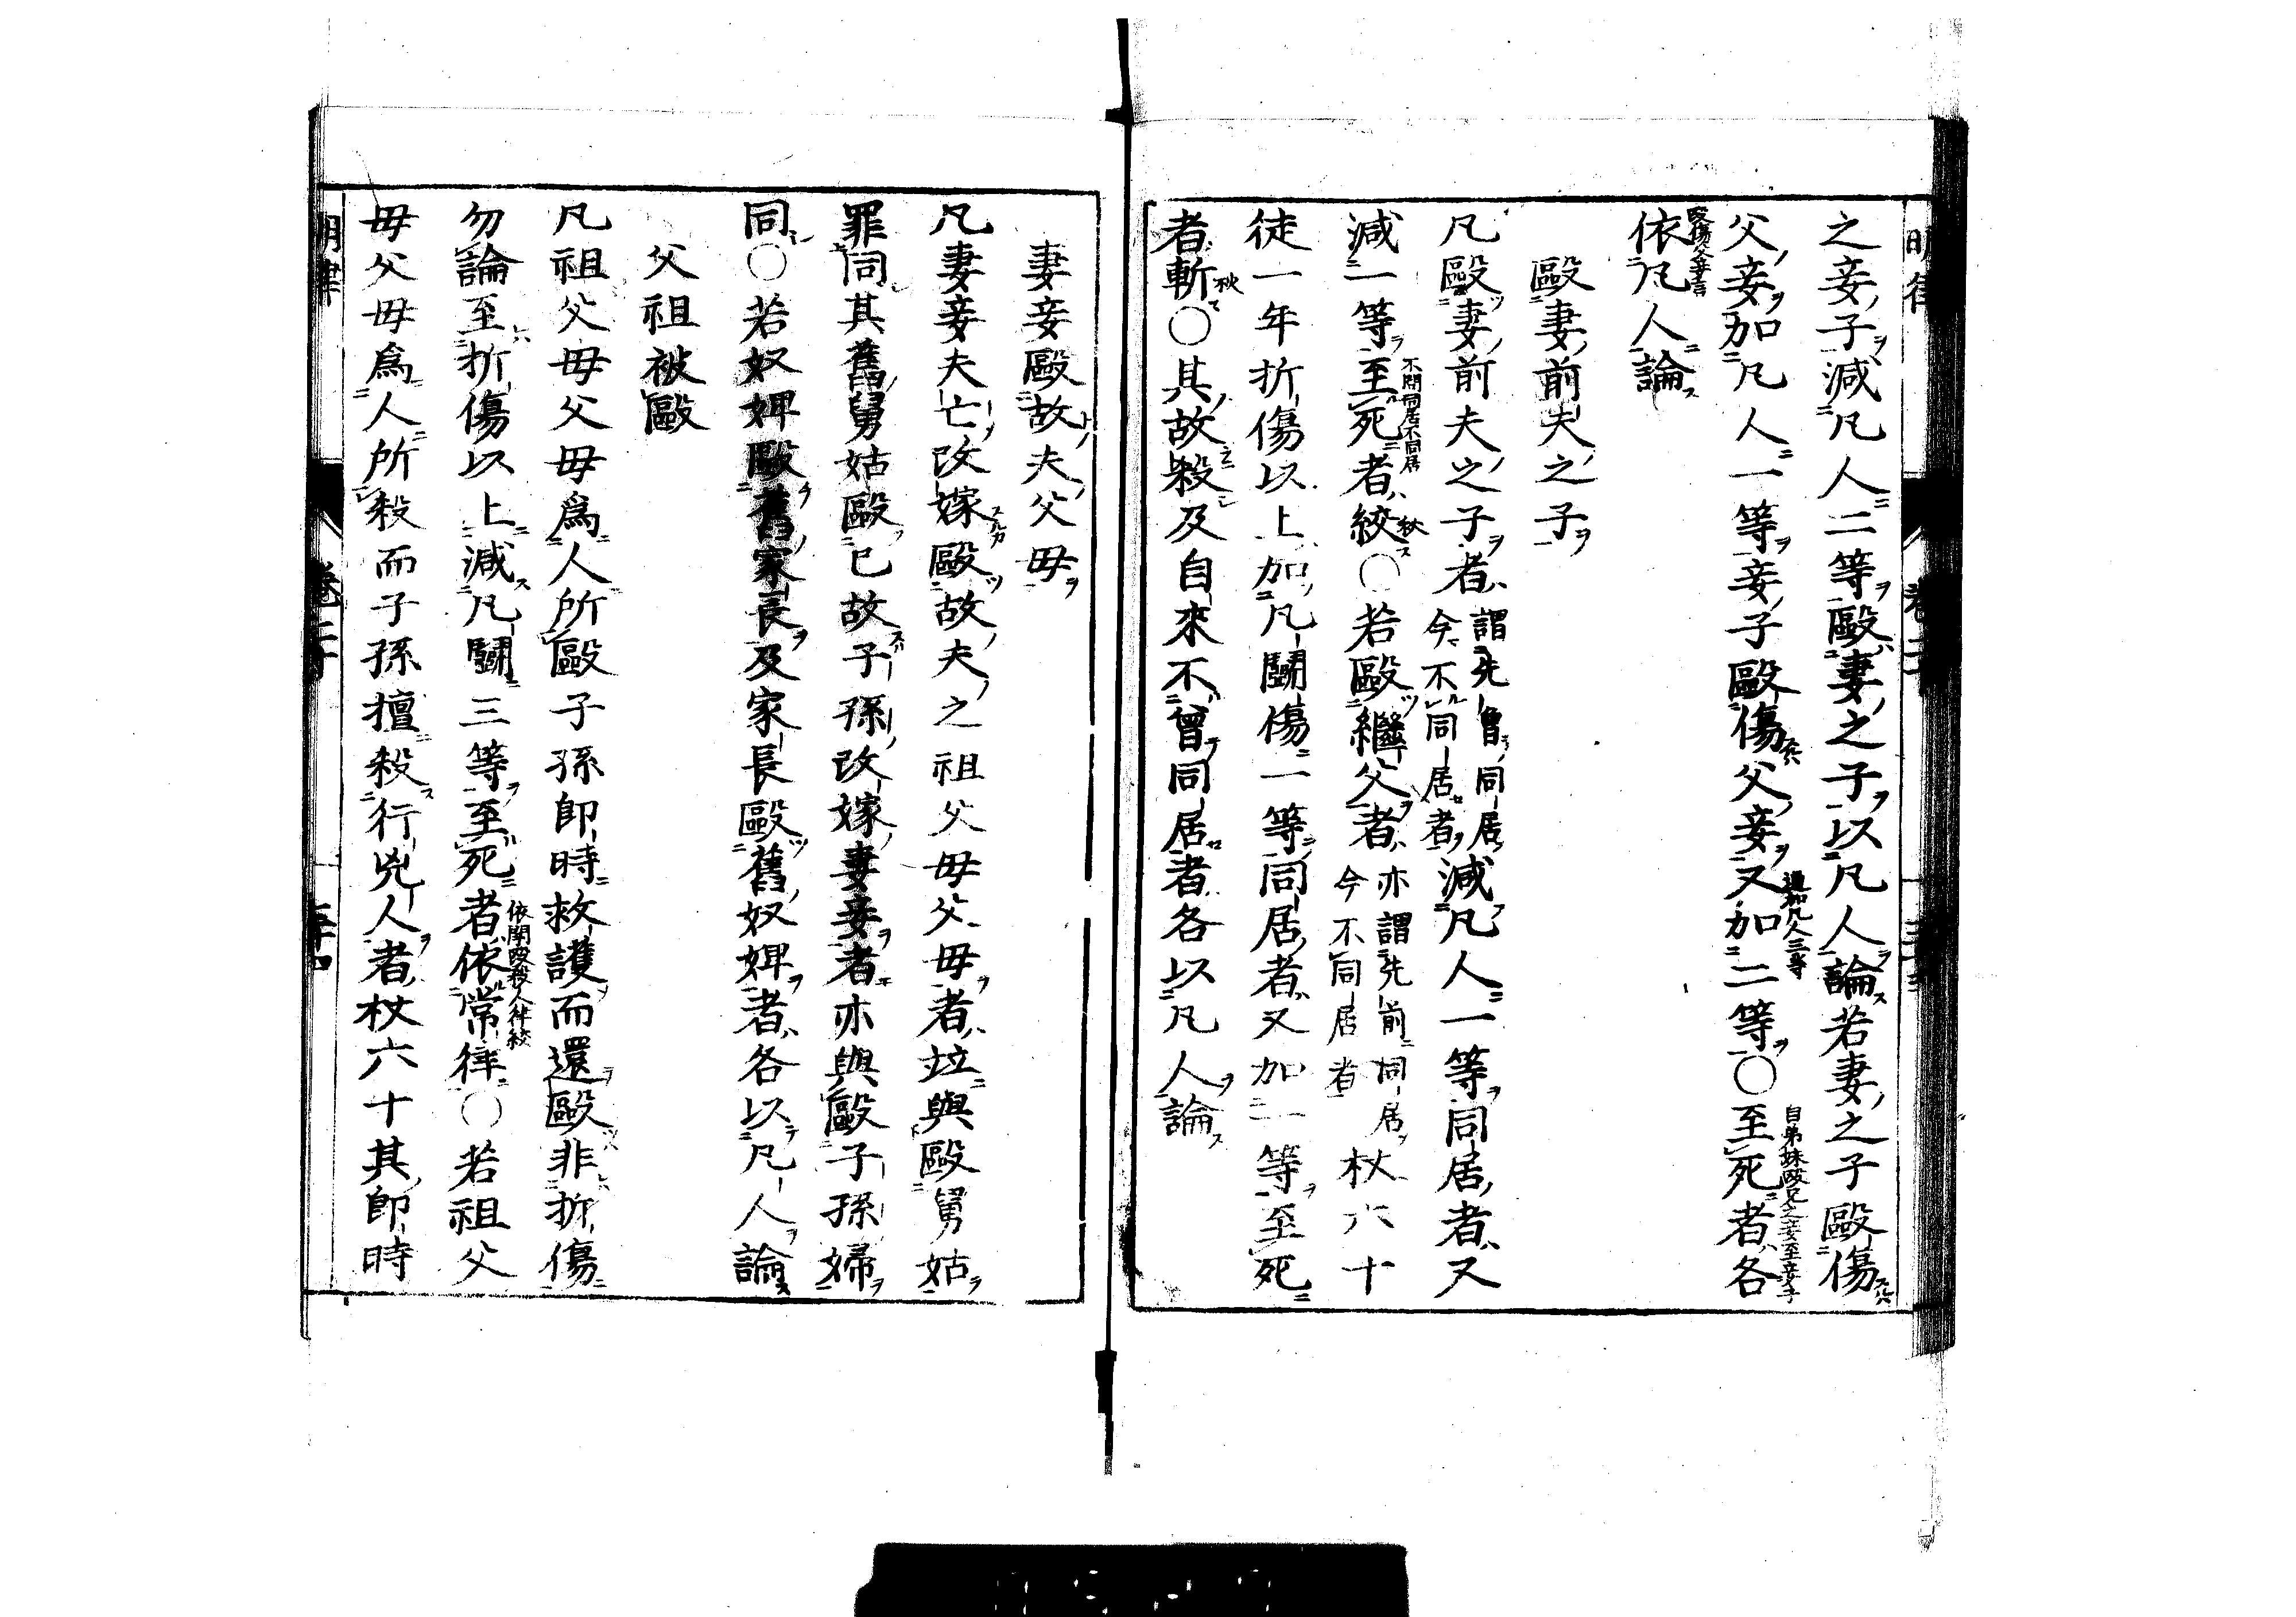 之妾子減凡人二等毆妻之子以凡人論若妻之子毆傷
父妾加凡人一等妾子毆傷父妾又加二等〇至死者各
通加凡人三等
自弟妹毆兄之妾至妾子
毆傷父妾言
依凡人論
毆妻前夫之子
凡毆妻前夫之子者謂先曾同居今不同居者減凡人一等同居者又
減一等至死者絞〇若毆繼父者亦謂先前同居今不同居者杖六十
不問同居不同居
徒一年折傷以上加凡鬬傷一等同居者又加一等至死
者斬〇其故殺及自來不曾同居者各以凡人論
妻妾毆故夫父母
凡妻妾夫亡改嫁毆故夫之祖父母父母者竝與毆舅姑
罪同其舊舅姑毆已故子孫改嫁妻妾者亦與毆子孫婦
同〇若奴婢毆舊家長及家長毆舊奴婢者各以凡人論
父祖被毆
凡祖父母父母爲人所毆子孫卽時救護而還毆非折傷
勿論至折傷以上減凡鬬三等至死者依常律〇若祖父
依鬬毆殺人律絞
母父母爲人所殺而子孫擅殺行兇人者杖六十其卽時